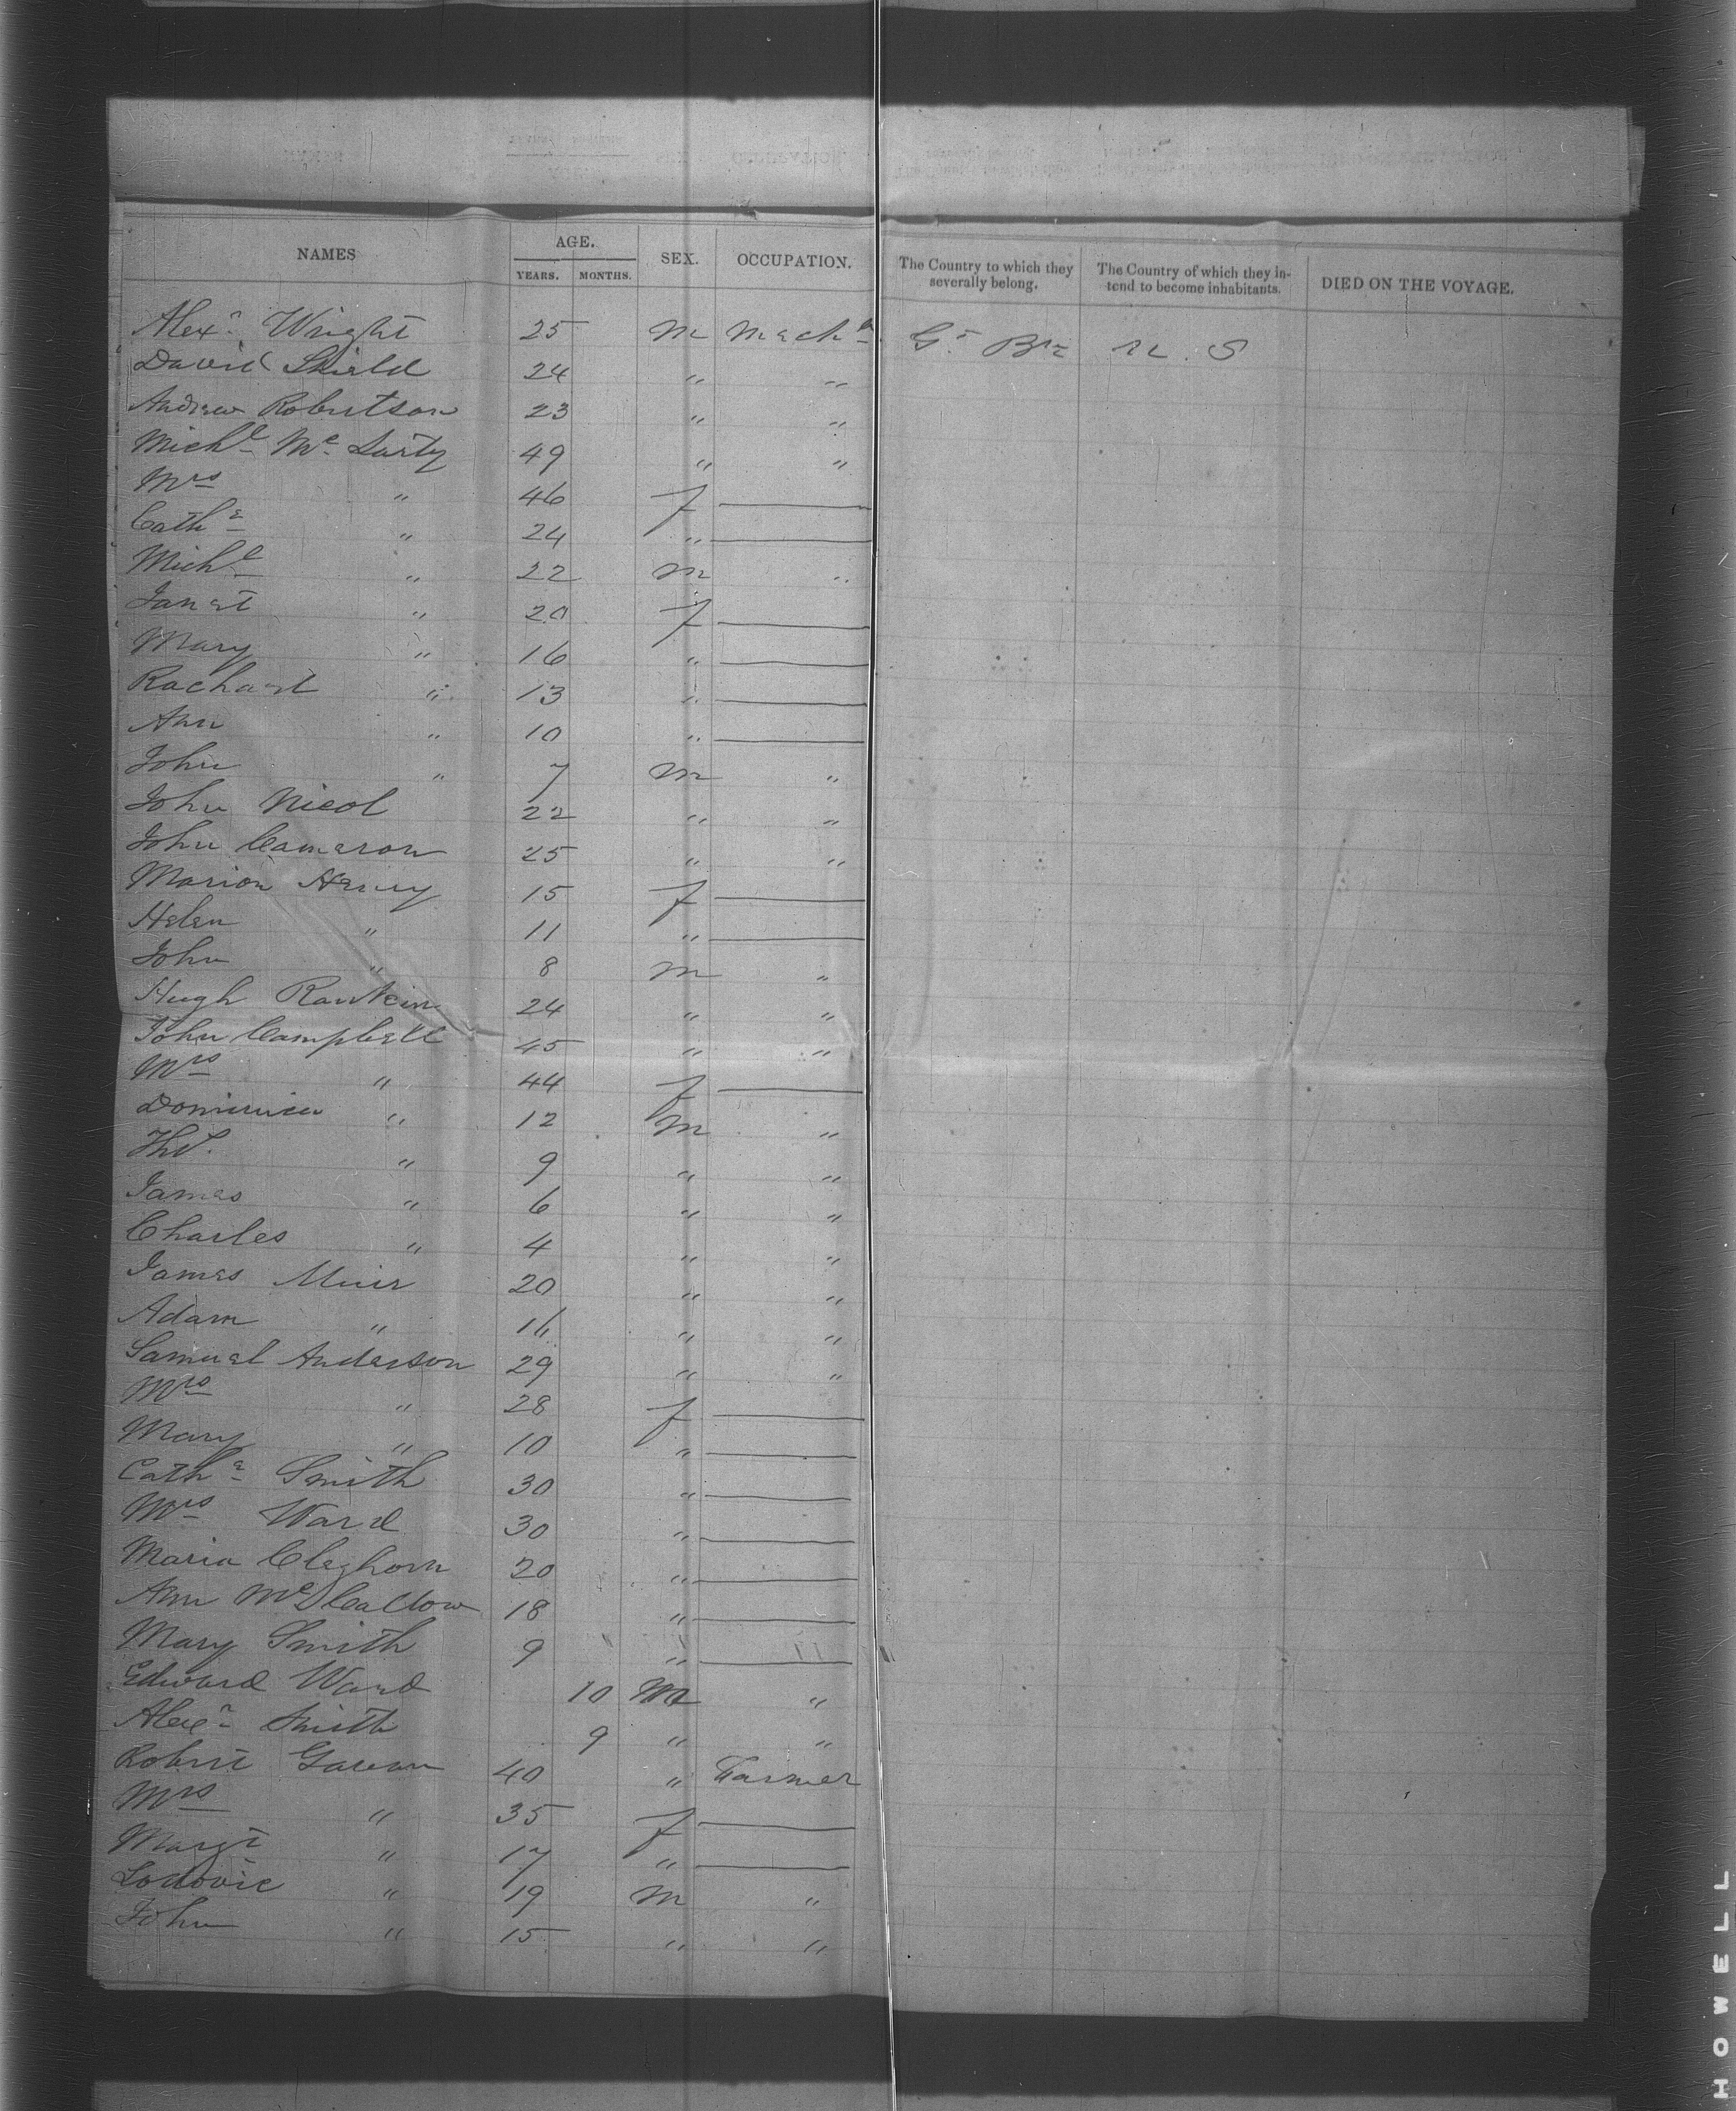 NAMES AGE. YEARS. MONTHS. SEX. OCCUPATION. The Country to which they severally belong. The Country of which they intend to become inhabitants. DIED ON THE VOYAGE.
Alexr Wright 25 m Mach Gt Brt U. S
David Shield 24 " "
Andrew Robertson 23 " "
Michl Mc Larty 49 " "
Mrs " 46 f
Cathe " 24 "
Michl " 22 m "
Janet " 20 f
Mary " 16 "
Rachael " 13 "
Ann " 10 "
John " 7 m "
John Nicol 22 " "
John Cameron 25 " "
Marion Henry 15 f
Helen " 11 "
John " 8 m "
Hugh Rankin 24 " "
John Campbell 45 " "
Mrs " 44 f
" 12 m "
Ths. " 9 " "
James " 6 " "
Charles " 4 " "
James Muir 20 " "
Adam " 16 " "
Samuel Anderson 29 " "
Mrs " 28 f
Mary " 10 "
Cathe Smith 30 "
Mrs Ward 30 "
Maria Cleghorn 20 "
Ann 18 "
Mary Smith 9 "
Edward Ward 10 m "
Alexr Smith 9 " "
Robert 40 " Farmer
Mrs " 35 f
Margt " 17 "
Lodovic " 19 m "
John " 15 " "
HOWELL